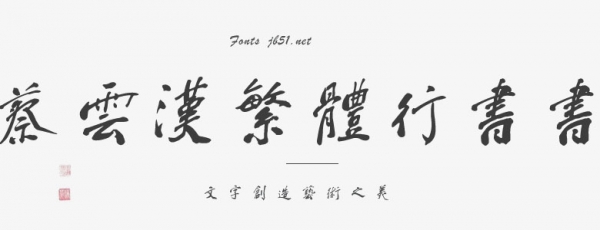 Fonts jb51.net
蔡雲漢繁體行書書
文字創造藝術之美